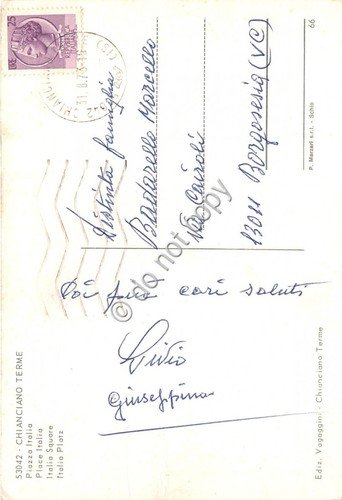 S3042 - CHIANCIANO TERME
Piazza Italia
Place Italia
Italia Square
Italia Platz
coi più cari saluti
Livio
Giuseppina
Ediz. Vagaggini - Chianciano Terme
P. Marzari s.r.l. - Schio
66
25
Distinta famiglia
Marcello
Via Cairoli
13011 Borgosesia (VC)
do not copy